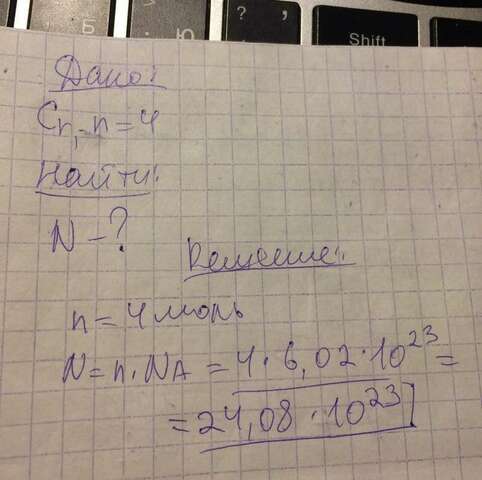 Б
Ю
?
,
Shift
Дано:
Cr, n = 4
Найти:
N - ?
Решение:
n = 4 моль
N = n · NA = 4 · 6,02 · 10²³ =
= 24,08 · 10²³